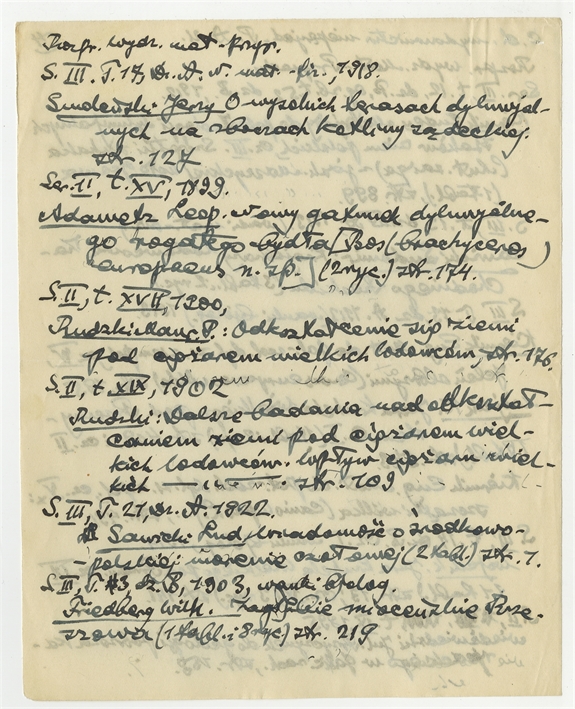 Rozpr. wydz. mat.-przyr.
S. III. T. 17, Dz. A. w. mat.-fiz., 1918.
Smoleński Jerzy O wysokich terasach dyluwjal-
nych na zboczach kotliny sądeckiej.
str. 127
Ser. II, t. XV, 1899.
Adametz Leop. Nowy gatunek dyluwjalne-
go rogatego bydła [Bos (brachyceros)
europaeus n. sp.] (2 ryc.) str. 174.
S. II, t. XVII, 1900,
Rudzki Maur. P.: Odkształcenie się ziemi
pod ciężarem wielkich lodowców, str. 176.
S. II, t. XIX, 1902
Rudzki: Dalsze badania nad odkształ-
caniem ziemi pod ciężarem wiel-
kich lodowców. Wpływ ciężaru wiel-
kich str. 109
S. III, T. 21, Dz. A. 1922.
Sawicki Lud. Wiadomość o środkowo-
-polskiej morenie czołowej (2 tabl.) str. 1.
S. III, T. 3, dz. B, 1903, nauki biolog.
Friedberg Wilh. Zagłębie mioceńskie Rze-
szowa (1 tabl. i 8 ryc) str. 219